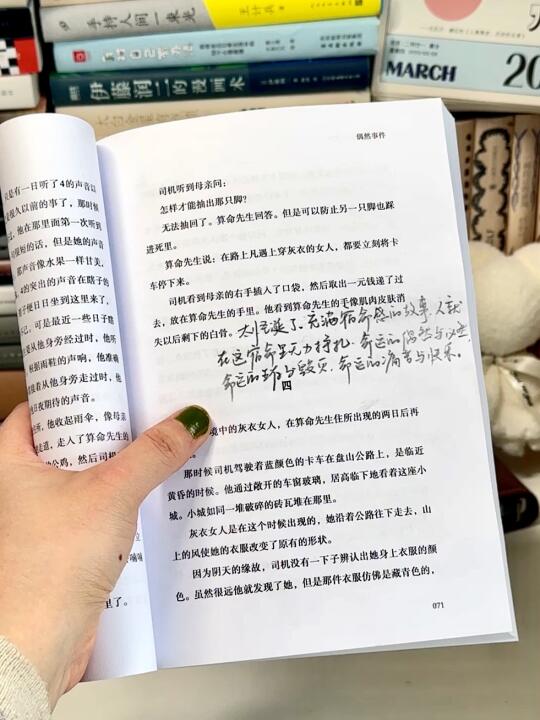 王计兵
手持人间一束光
伊藤润二的漫画术
MARCH
20
偶然事件
是有一日听了4的声音以
很久以前的事了，那时候
他在那里面第一次听到
很好的话，但是她的声音
那声音像水果一样甘美，
4的突出的声音在瞎子的
子便日日坐到这里来了，
记，可是最近一些日子瞎
要从他身旁经过时，他所
根据雨鞋的声响，他准确
接着从他身旁走过时，他
日夜期待的声音。
所，他收起雨伞，像母亲
走道，走入了算命先生的
公鸡，然后司机
嘀
里了。
司机听到母亲问：
怎样才能抽出那只脚？
无法抽回了。算命先生回答。但是可以防止另一只脚也踩
进死里。
算命先生说：在路上凡遇上穿灰衣的女人，都要立刻将卡
车停下来。
司机看到母亲的右手插入了口袋，然后取出一元钱递了过
去，放在算命先生的手里。他看到算命先生的手像肌肉皮肤消
失以后剩下的白骨。
充满宿命感的故事，人就
在这宿命里无力挣扎。命运的偶然与必然，
命运的与毁灭，命运的痛苦与快乐。
四
境中的灰衣女人，在算命先生住所出现的两日后再
那时候司机驾驶着蓝颜色的卡车在盘山公路上，是临近
黄昏的时候。他通过敞开的车窗玻璃，居高临下地看着这座小
城。小城如同一堆破碎的砖瓦堆在那里。
灰衣女人是在这个时候出现的，她沿着公路往下走去，山
上的风使她的衣服改变了原有的形状。
因为阴天的缘故，司机没有一下子辨认出她身上衣服的颜
色。虽然很远他就发现了她，但是那件衣服仿佛是藏青色的，
071